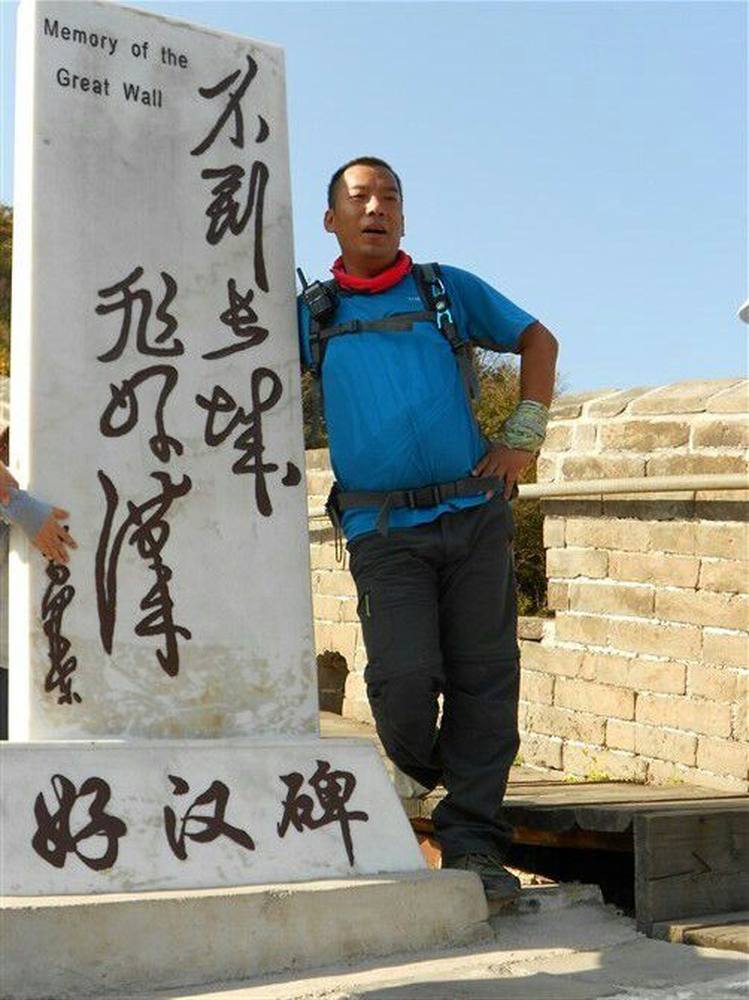 Memory of the
Great Wall
不到长城
非好漢
毛泽东
好汉碑